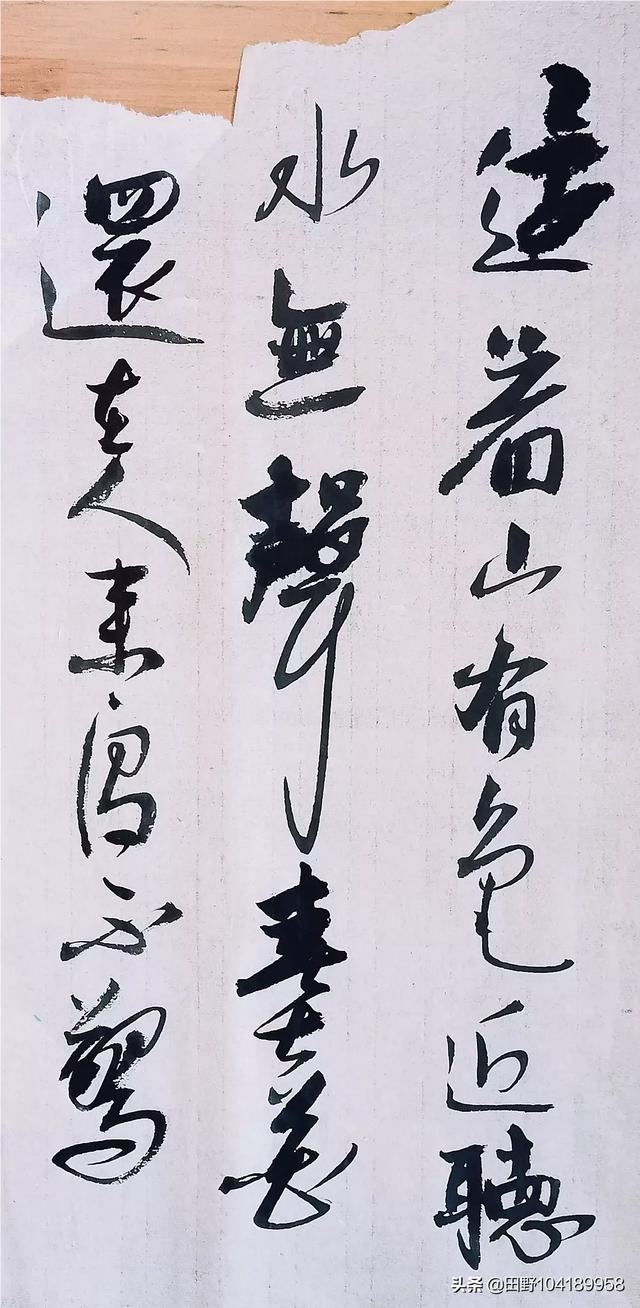 遠看山有色近聽
水無聲春去花
還在人来鳥不驚
头条 @田野104189958